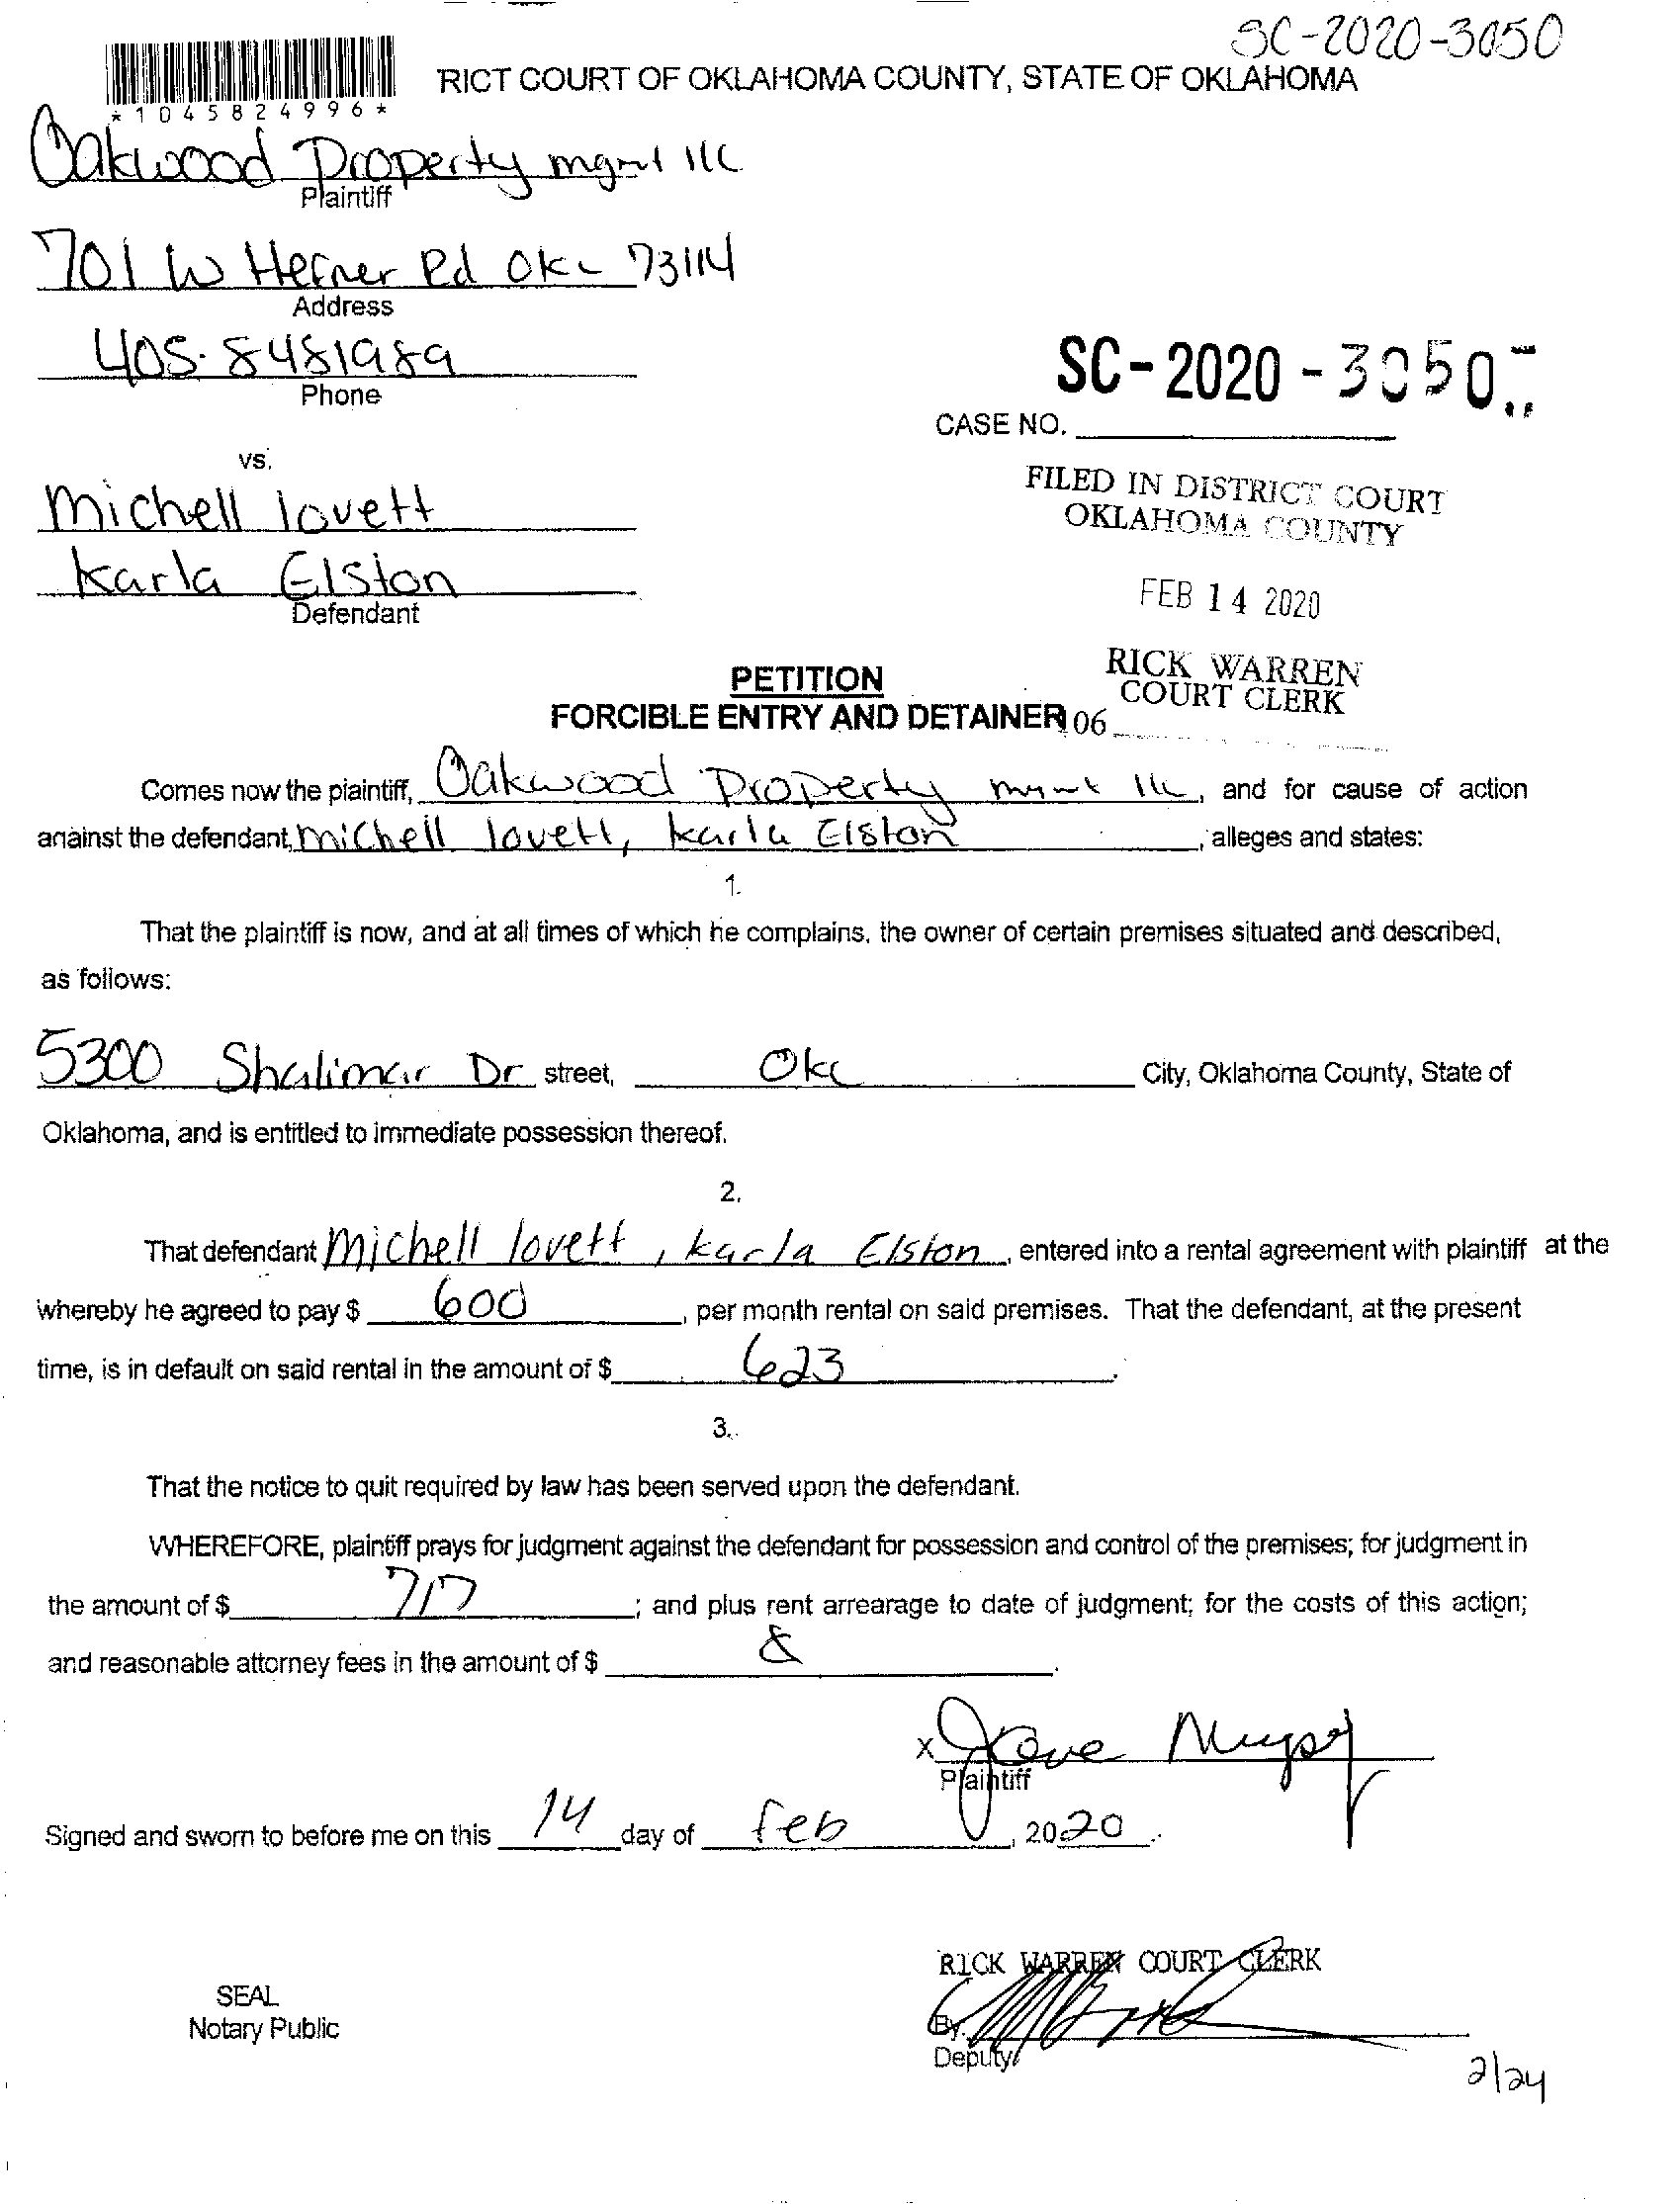 SC-2020-3050
RICT COURT OF OKLAHOMA COUNTY, STATE OF OKLAHOMA
*1045824996*
Oakwood Property mgmt llc
Plaintiff
701 W Hefner Rd Okc 73114
Address
405-8481989
Phone
SC-2020-3050
CASE NO.
vs.
Michell lovett
Karla Elston
Defendant
FILED IN DISTRICT COURT
OKLAHOMA COUNTY
FEB 14 2020
RICK WARREN
COURT CLERK
06
PETITION
FORCIBLE ENTRY AND DETAINER
Comes now the plaintiff, Oakwood Property mgmt llc, and for cause of action
against the defendant, Michell lovett, karla Elston, alleges and states:
1.
That the plaintiff is now, and at all times of which he complains, the owner of certain premises situated and described,
as follows:
5300 Shalimar Dr street, Okc City, Oklahoma County, State of
Oklahoma, and is entitled to immediate possession thereof.
2.
That defendant Michell lovett, karla Elston, entered into a rental agreement with plaintiff at the
whereby he agreed to pay $ 600, per month rental on said premises. That the defendant, at the present
time, is in default on said rental in the amount of $ 623.
3.
That the notice to quit required by law has been served upon the defendant.
WHEREFORE, plaintiff prays for judgment against the defendant for possession and control of the premises; for judgment in
the amount of $ 717; and plus rent arrearage to date of judgment; for the costs of this action;
and reasonable attorney fees in the amount of $
X
Plaintiff
Signed and sworn to before me on this 14 day of feb, 2020.
RICK WARREN COURT CLERK
SEAL
Notary Public
By.
Deputy
2/24